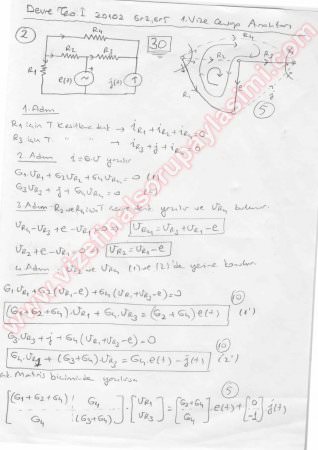 Devre Teo I 20102 Gr2, Gr5 1. Vize Cevap Anahtarı
2
30
R4
R2 R3
R1 e(t) j(t)
5
1. Adım
R1 için T. Kesitleme → iR1 + iR2 + iR4 = 0
R3 için T " " → iR3 + j + iR4 = 0
2. Adım i = G.V yazılır
G1.VR1 + G2VR2 + G4VR4 = 0 (1)
G3VR3 + j + G4VR4 = 0 (2)
3. Adım - R2 ve R4 için T çevre yazılır ve VR4 bulunur.
VR4 = VR3 + VR1 - e
VR2 + e - VR1 = 0 → VR2 = VR1 - e
4. Adım VR2 ve VR4 (1) ve (2)'de yerine
G1VR1 + G2(VR1 - e) + G4(VR1 + VR3 - e) = 0
10
(G1 + G2 + G4).VR1 + G4.VR3 = (G2 + G4) e(t) (1')
G3VR3 + j + G4(VR1 + VR3 - e) = 0
10
G4.VR1 + (G3 + G4)VR3 = G4.e(t) - j(t) (2')
Matris biçiminde yazılırsa
5
[(G1 + G2 + G4) G4] . [VR1] = [G2 + G4] e(t) + [0] j(t)
[G4 (G3 + G4)] [VR3] [G4] [-1]
www.vizefinalsorupaylasimi.com